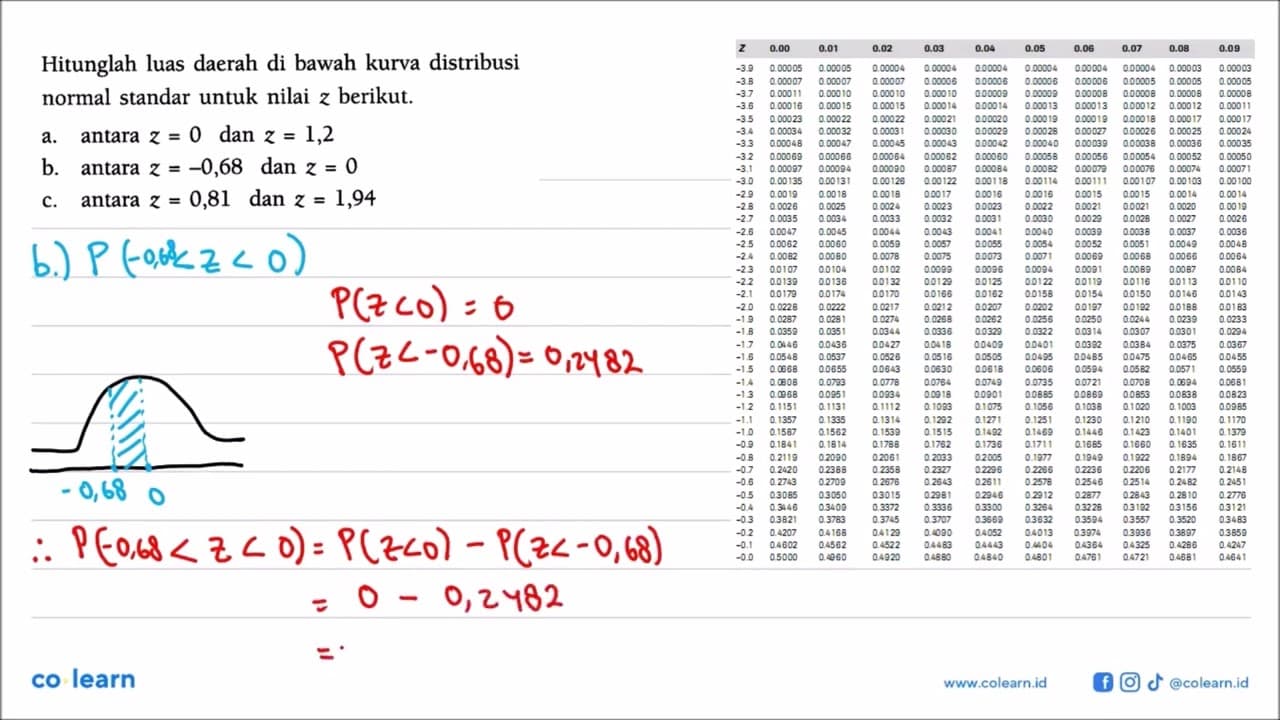 Hitunglah luas daerah di bawah kurva distribusi
normal standar untuk nilai z berikut.
a. antara z = 0 dan z = 1,2
b. antara z = –0,68 dan z = 0
c. antara z = 0,81 dan z = 1,94
b.) P(-0,68 < Z < 0)
P(Z<0) = 0
P(Z<-0,68) = 0,2482
-0,68 0
∴ P(-0,68 < Z < 0) = P(Z<0) - P(Z<-0,68)
= 0 - 0,2482
=
Z 0.00 0.01 0.02 0.03 0.04 0.05 0.06 0.07 0.08 0.09
-3.9 0.00005 0.00005 0.00004 0.00004 0.00004 0.00004 0.00004 0.00004 0.00003 0.00003
-3.8 0.00007 0.00007 0.00007 0.00006 0.00006 0.00006 0.00006 0.00005 0.00005 0.00005
-3.7 0.00011 0.00010 0.00010 0.00010 0.00009 0.00009 0.00008 0.00008 0.00008 0.00008
-3.6 0.00016 0.00015 0.00015 0.00014 0.00014 0.00013 0.00013 0.00012 0.00012 0.00011
-3.5 0.00023 0.00022 0.00022 0.00021 0.00020 0.00019 0.00019 0.00018 0.00017 0.00017
-3.4 0.00034 0.00032 0.00031 0.00030 0.00029 0.00028 0.00027 0.00026 0.00025 0.00024
-3.3 0.00048 0.00047 0.00045 0.00043 0.00042 0.00040 0.00039 0.00038 0.00036 0.00035
-3.2 0.00069 0.00066 0.00064 0.00062 0.00060 0.00058 0.00056 0.00054 0.00052 0.00050
-3.1 0.00097 0.00094 0.00090 0.00087 0.00084 0.00082 0.00079 0.00076 0.00074 0.00071
-3.0 0.00135 0.00131 0.00126 0.00122 0.00118 0.00114 0.00111 0.00107 0.00103 0.00100
-2.9 0.0019 0.0018 0.0018 0.0017 0.0016 0.0016 0.0015 0.0015 0.0014 0.0014
-2.8 0.0026 0.0025 0.0024 0.0023 0.0023 0.0022 0.0021 0.0021 0.0020 0.0019
-2.7 0.0035 0.0034 0.0033 0.0032 0.0031 0.0030 0.0029 0.0028 0.0027 0.0026
-2.6 0.0047 0.0045 0.0044 0.0043 0.0041 0.0040 0.0039 0.0038 0.0037 0.0036
-2.5 0.0062 0.0060 0.0059 0.0057 0.0055 0.0054 0.0052 0.0051 0.0049 0.0048
-2.4 0.0082 0.0080 0.0078 0.0075 0.0073 0.0071 0.0069 0.0068 0.0066 0.0064
-2.3 0.0107 0.0104 0.0102 0.0099 0.0096 0.0094 0.0091 0.0089 0.0087 0.0084
-2.2 0.0139 0.0136 0.0132 0.0129 0.0125 0.0122 0.0119 0.0116 0.0113 0.0110
-2.1 0.0179 0.0174 0.0170 0.0166 0.0162 0.0158 0.0154 0.0150 0.0146 0.0143
-2.0 0.0228 0.0222 0.0217 0.0212 0.0207 0.0202 0.0197 0.0192 0.0188 0.0183
-1.9 0.0287 0.0281 0.0274 0.0268 0.0262 0.0256 0.0250 0.0244 0.0239 0.0233
-1.8 0.0359 0.0351 0.0344 0.0336 0.0329 0.0322 0.0314 0.0307 0.0301 0.0294
-1.7 0.0446 0.0436 0.0427 0.0418 0.0409 0.0401 0.0392 0.0384 0.0375 0.0367
-1.6 0.0548 0.0537 0.0526 0.0516 0.0505 0.0495 0.0485 0.0475 0.0465 0.0455
-1.5 0.0668 0.0655 0.0643 0.0630 0.0618 0.0606 0.0594 0.0582 0.0571 0.0559
-1.4 0.0808 0.0793 0.0778 0.0764 0.0749 0.0735 0.0721 0.0708 0.0694 0.0681
-1.3 0.0968 0.0951 0.0934 0.0918 0.0901 0.0885 0.0869 0.0853 0.0838 0.0823
-1.2 0.1151 0.1131 0.1112 0.1093 0.1075 0.1056 0.1038 0.1020 0.1003 0.0985
-1.1 0.1357 0.1335 0.1314 0.1292 0.1271 0.1251 0.1230 0.1210 0.1190 0.1170
-1.0 0.1587 0.1562 0.1539 0.1515 0.1492 0.1469 0.1446 0.1423 0.1401 0.1379
-0.9 0.1841 0.1814 0.1788 0.1762 0.1736 0.1711 0.1685 0.1660 0.1635 0.1611
-0.8 0.2119 0.2090 0.2061 0.2033 0.2005 0.1977 0.1949 0.1922 0.1894 0.1867
-0.7 0.2420 0.2388 0.2358 0.2327 0.2296 0.2266 0.2236 0.2206 0.2177 0.2148
-0.6 0.2743 0.2709 0.2676 0.2643 0.2611 0.2578 0.2546 0.2514 0.2482 0.2451
-0.5 0.3085 0.3050 0.3015 0.2981 0.2946 0.2912 0.2877 0.2843 0.2810 0.2776
-0.4 0.3446 0.3409 0.3372 0.3336 0.3300 0.3264 0.3228 0.3192 0.3156 0.3121
-0.3 0.3821 0.3783 0.3745 0.3707 0.3669 0.3632 0.3594 0.3557 0.3520 0.3483
-0.2 0.4207 0.4168 0.4129 0.4090 0.4052 0.4013 0.3974 0.3936 0.3897 0.3859
-0.1 0.4602 0.4562 0.4522 0.4483 0.4443 0.4404 0.4364 0.4325 0.4286 0.4247
-0.0 0.5000 0.4960 0.4920 0.4880 0.4840 0.4801 0.4761 0.4721 0.4681 0.4641
co learn
www.colearn.id
@colearn.id